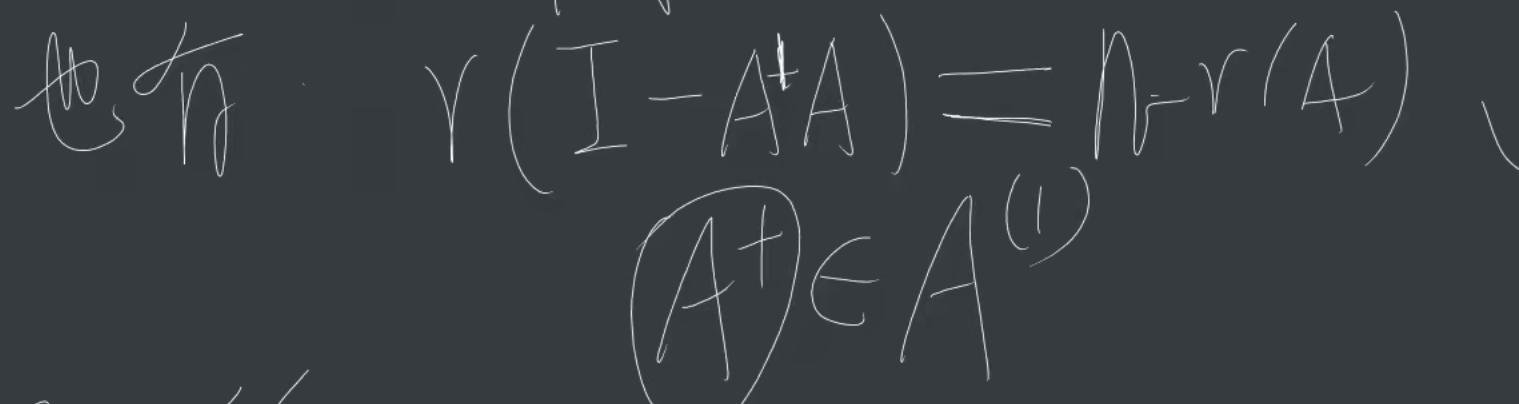 也有 r(I-A⁺A)=n-r(A)
A⁺∈A⁽¹⁾